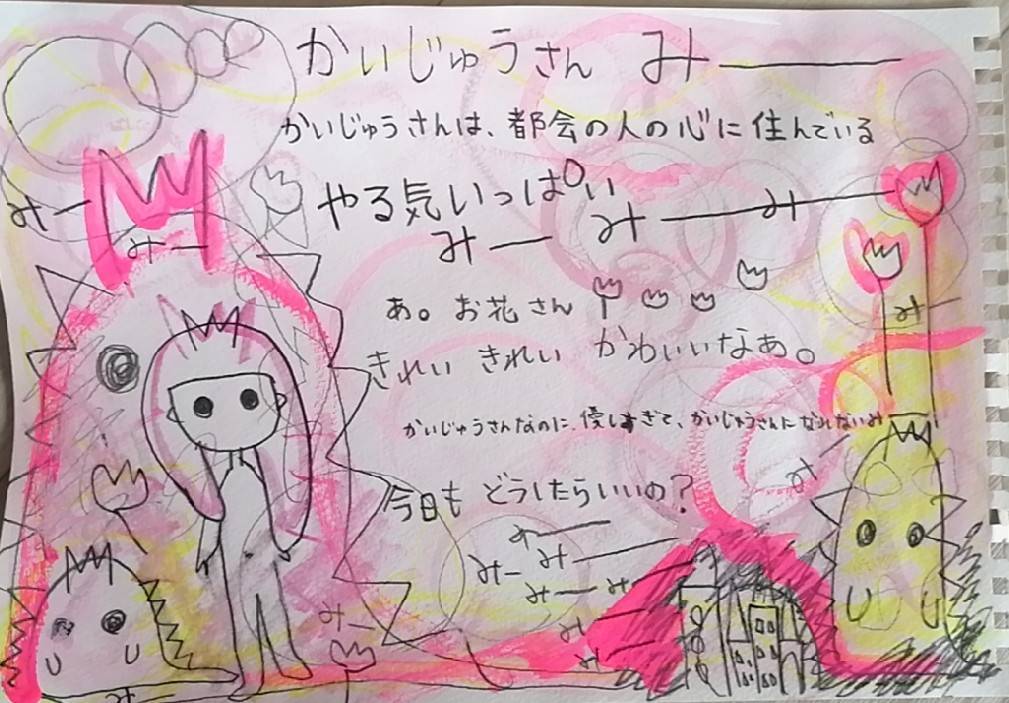 かいじゅうさん みー
かいじゅうさんは、都会の人の心に住んでいる
やる気いっぱい
みー
みー
みー
みー みー
みー
あ。お花さん
みー
きれい きれい かわいいなあ。
かいじゅうさんなのに、優しすぎて、かいじゅうさんになれないみ
みー
今日も どうしたらいいの?
みー
みー
みー
みー
みー
みー
みー
みー
みー